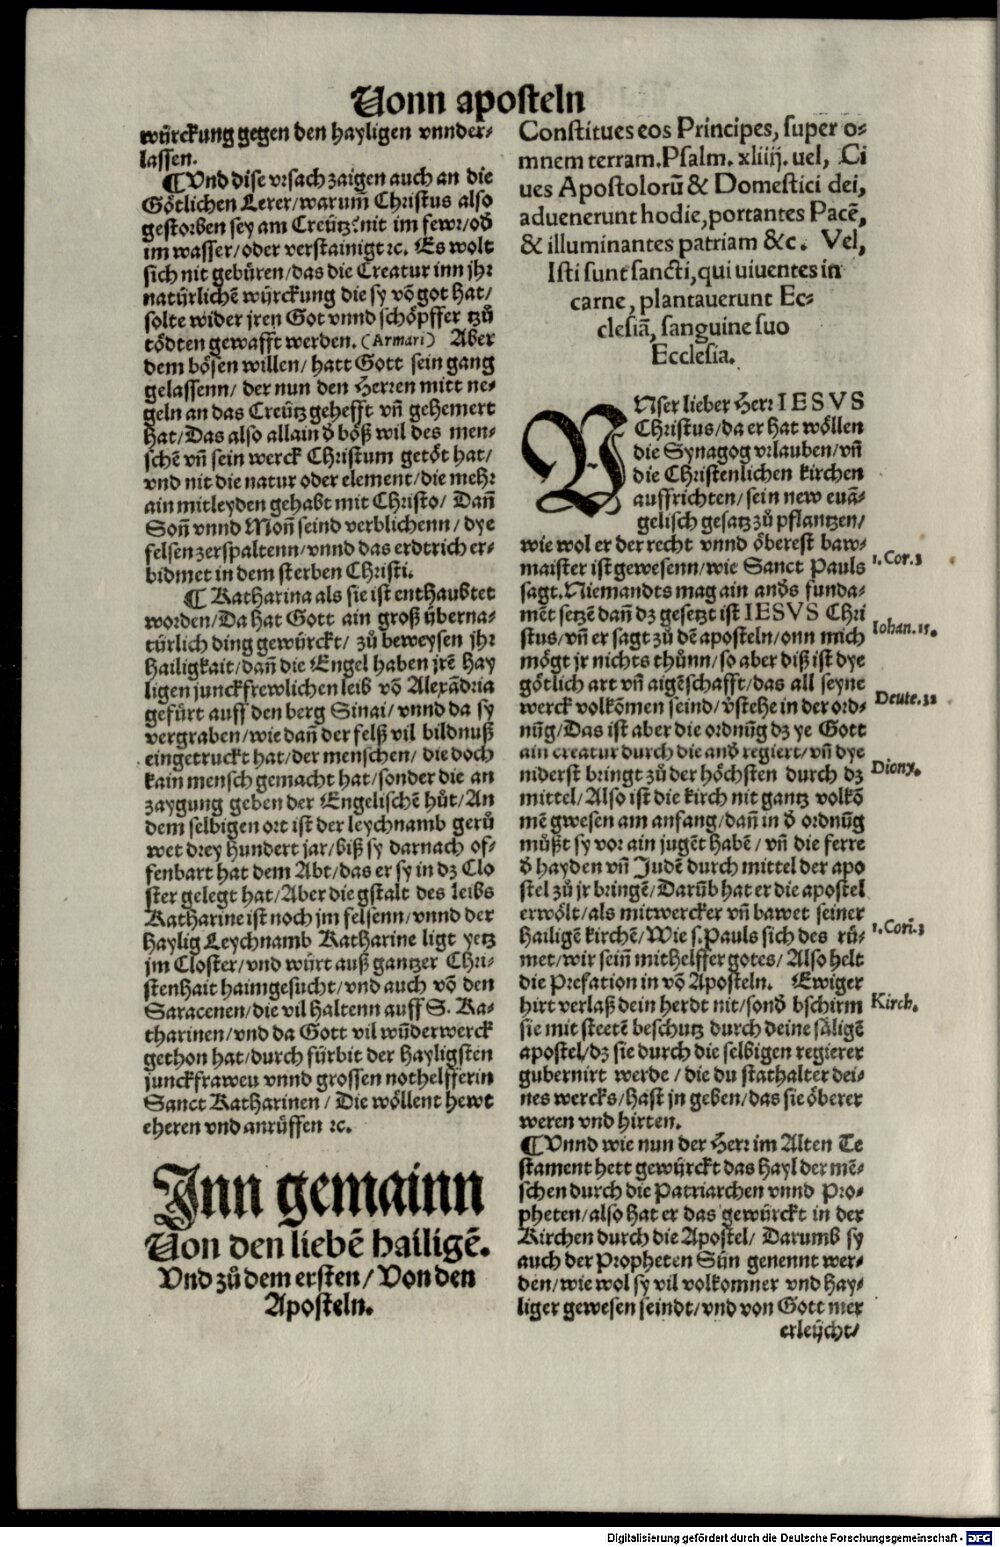 Vonn aposteln
würckung gegen den hayligen vnnder-
lassen.
¶Vnd dise vrsach zaigen auch an die
Götlichen Lerer/warum̃ Christus also
gestorben sey am Creütz:nit im fewr/od̃
im wasser/oder verstainigt ꝛc. Es wolt
sich nit gebüren/das die Creatur inn jhr
natürlichẽ würckung die sy võ got hat/
solte wider jren Got vnnd schöpffer tzů
tödten gewafft werden. (Armari) Aber
dem bösen willen/ hatt Gott sein gang
gelassenn/ der nun den Herren mitt ne-
geln an das Creütz gehefft vñ gehemert
hat/Das also allain d̃ böß wil des men-
schẽ vñ sein werck Christum getöt hat/
vnd nit die natur oder element/die mehr
ain mitleyden gehabt mit Christo/ Dañ
Soñ vnnd Moñ seind verblichenn/ dye
felsen zerspaltenn/vnnd das erdtrich er-
bidmet in dem sterben Christi.
¶ Katharina als sie ist enthaubtet
worden/Da hat Gott ain groß überna-
türlich ding gewürckt/ zů beweysen jhr
hailigkait/dañ die Engel haben jrẽ hay
ligen junckfrewlichen leib võ Alexãdria
gefürt auff den berg Sinai/vnnd da sy
vergraben/wie dañ der felß vil bildnuß
eingetruckt hat/der menschen/ die doch
kain mensch gemacht hat/sonder die an
zaygung geben der Engelischẽ hůt/An
dem selbigen ort ist der leychnamb gerů
wet drey hundert jar/biß sy darnach of-
fenbart hat dem Abt/das er sy in dz Clo
ster gelegt hat/Aber die gstalt des leibs
Katharine ist noch jm felsenn/vnnd der
haylig Leychnamb Katharine ligt yetz
jm Closter/vnd würt auß gantzer Chri-
stenhait haimgesucht/vnd auch võ den
Saracenen/die vil haltenn auff S. Ka-
tharinen/vnd da Gott vil wũderwerck
gethon hat/durch fürbit der hayligsten
junckfrawen vnnd grossen nothelfferin
Sanct Katharinen/ Die wöllent hewt
eheren vnd anrüffen ꝛc.
Inn gemainn
Von den liebẽ hailigẽ.
Vnd zů dem ersten/Von den
Aposteln.
Constitues eos Principes, super o-
mnem terram.Psalm. xliiij. uel, Ci
ues Apostolorũ & Domestici dei,
aduenerunt hodie,portantes Pacẽ,
& illuminantes patriam &c. Vel,
Isti sunt sancti,qui uiuentes in
carne, plantauerunt Ec-
clesiã, sanguine suo
Ecclesia.
VNser lieber Herr IESVS
Christus/da er hat wöllen
die Synagog vrlauben/vñ
die Christenlichen kirchen
auffrichten/sein new euã-
gelisch gesatz zů pflantzen/
wie wol er der recht vnnd öberest baw-
maister ist gewesenn/wie Sanct Pauls
sagt.Niemandts mag ain and̃s funda-
mẽt setzẽ dañ dz gesetzt ist IESVS Chri
stus/vñ er sagt zů dẽ aposteln/onn mich
mögt jr nichts thůnn/so aber diß ist dye
götlich art vñ aigẽschafft/das all seyne
werck volkõmen seind/v̈stehe in der ord-
nũg/Das ist aber die ordnũg dz ye Gott
ain creatur durch die and̃ regiert/vñ dye
niderst bringt zů der höchsten durch dz
mittel/Also ist die kirch nit gantz volkõ
mẽ gwesen am anfang/dañ in d̃ ordnũg
můßt sy vor ain jugẽt habẽ/ vñ die ferre
d̃ hayden vñ Judẽ durch mittel der apo
stel zů jr bringẽ/Darũb hat er die apostel
erwölt/als mitwercker vñ bawet seiner
hailigẽ kirchẽ/Wie s.Pauls sich des rü-
met/wir seiñ mithelffer gotes/Also helt
die Prefation in võ Aposteln. Ewiger
hirt verlaß dein herdt nit/sond̃ bschirm
sie mit steetẽ beschutz durch deine säligẽ
apostel/dz sie durch die selbigen regierer
gubernirt werde/die du stathalter dei-
nes wercks/hast jn geben/das sie öberer
weren vnd hirten.
¶Vnnd wie nun der Herr im Alten Te
stament hett gewürckt das hayl der mẽ-
schen durch die Patriarchen vnnd Pro-
pheten/also hat er das gewürckt in der
Kirchen durch die Apostel/ Darumb sy
auch der Propheten Sün genennt wer-
den/wie wol sy vil volkomner vnd hay-
liger gewesen seindt/vnd von Gott mer
erleücht/
1.Cor.3
Iohan.15.
Deute.32
Diony.
1.Cori.3
Kirch.
Digitalisierung gefördert durch die Deutsche Forschungsgemeinschaft - DFG